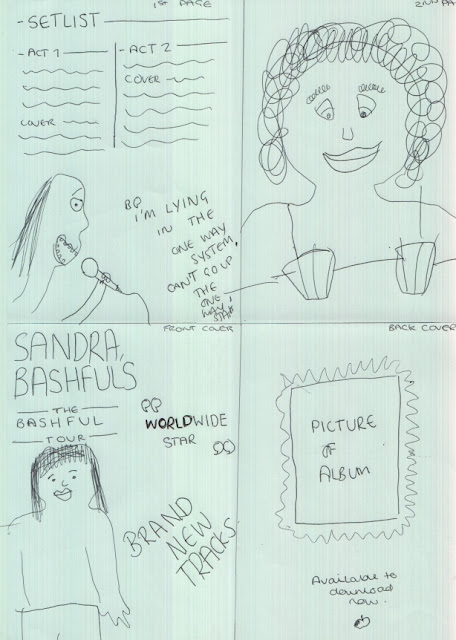 1ST PAGE
SETLIST
ACT 1
ACT 2
COVER
COVER
I'M LYING
IN THE
ONE WAY
SYSTEM,
CAN'T GO UP
THE
ONE
WAY
2ND PA
FRONT COVER
SANDRA,
BASHFULS
THE
BASHFUL
TOUR
WORLDWIDE
STAR
BRAND
NEW
TRACKS
BACK COVER
PICTURE
OF
ALBUM
Available to
download
now.